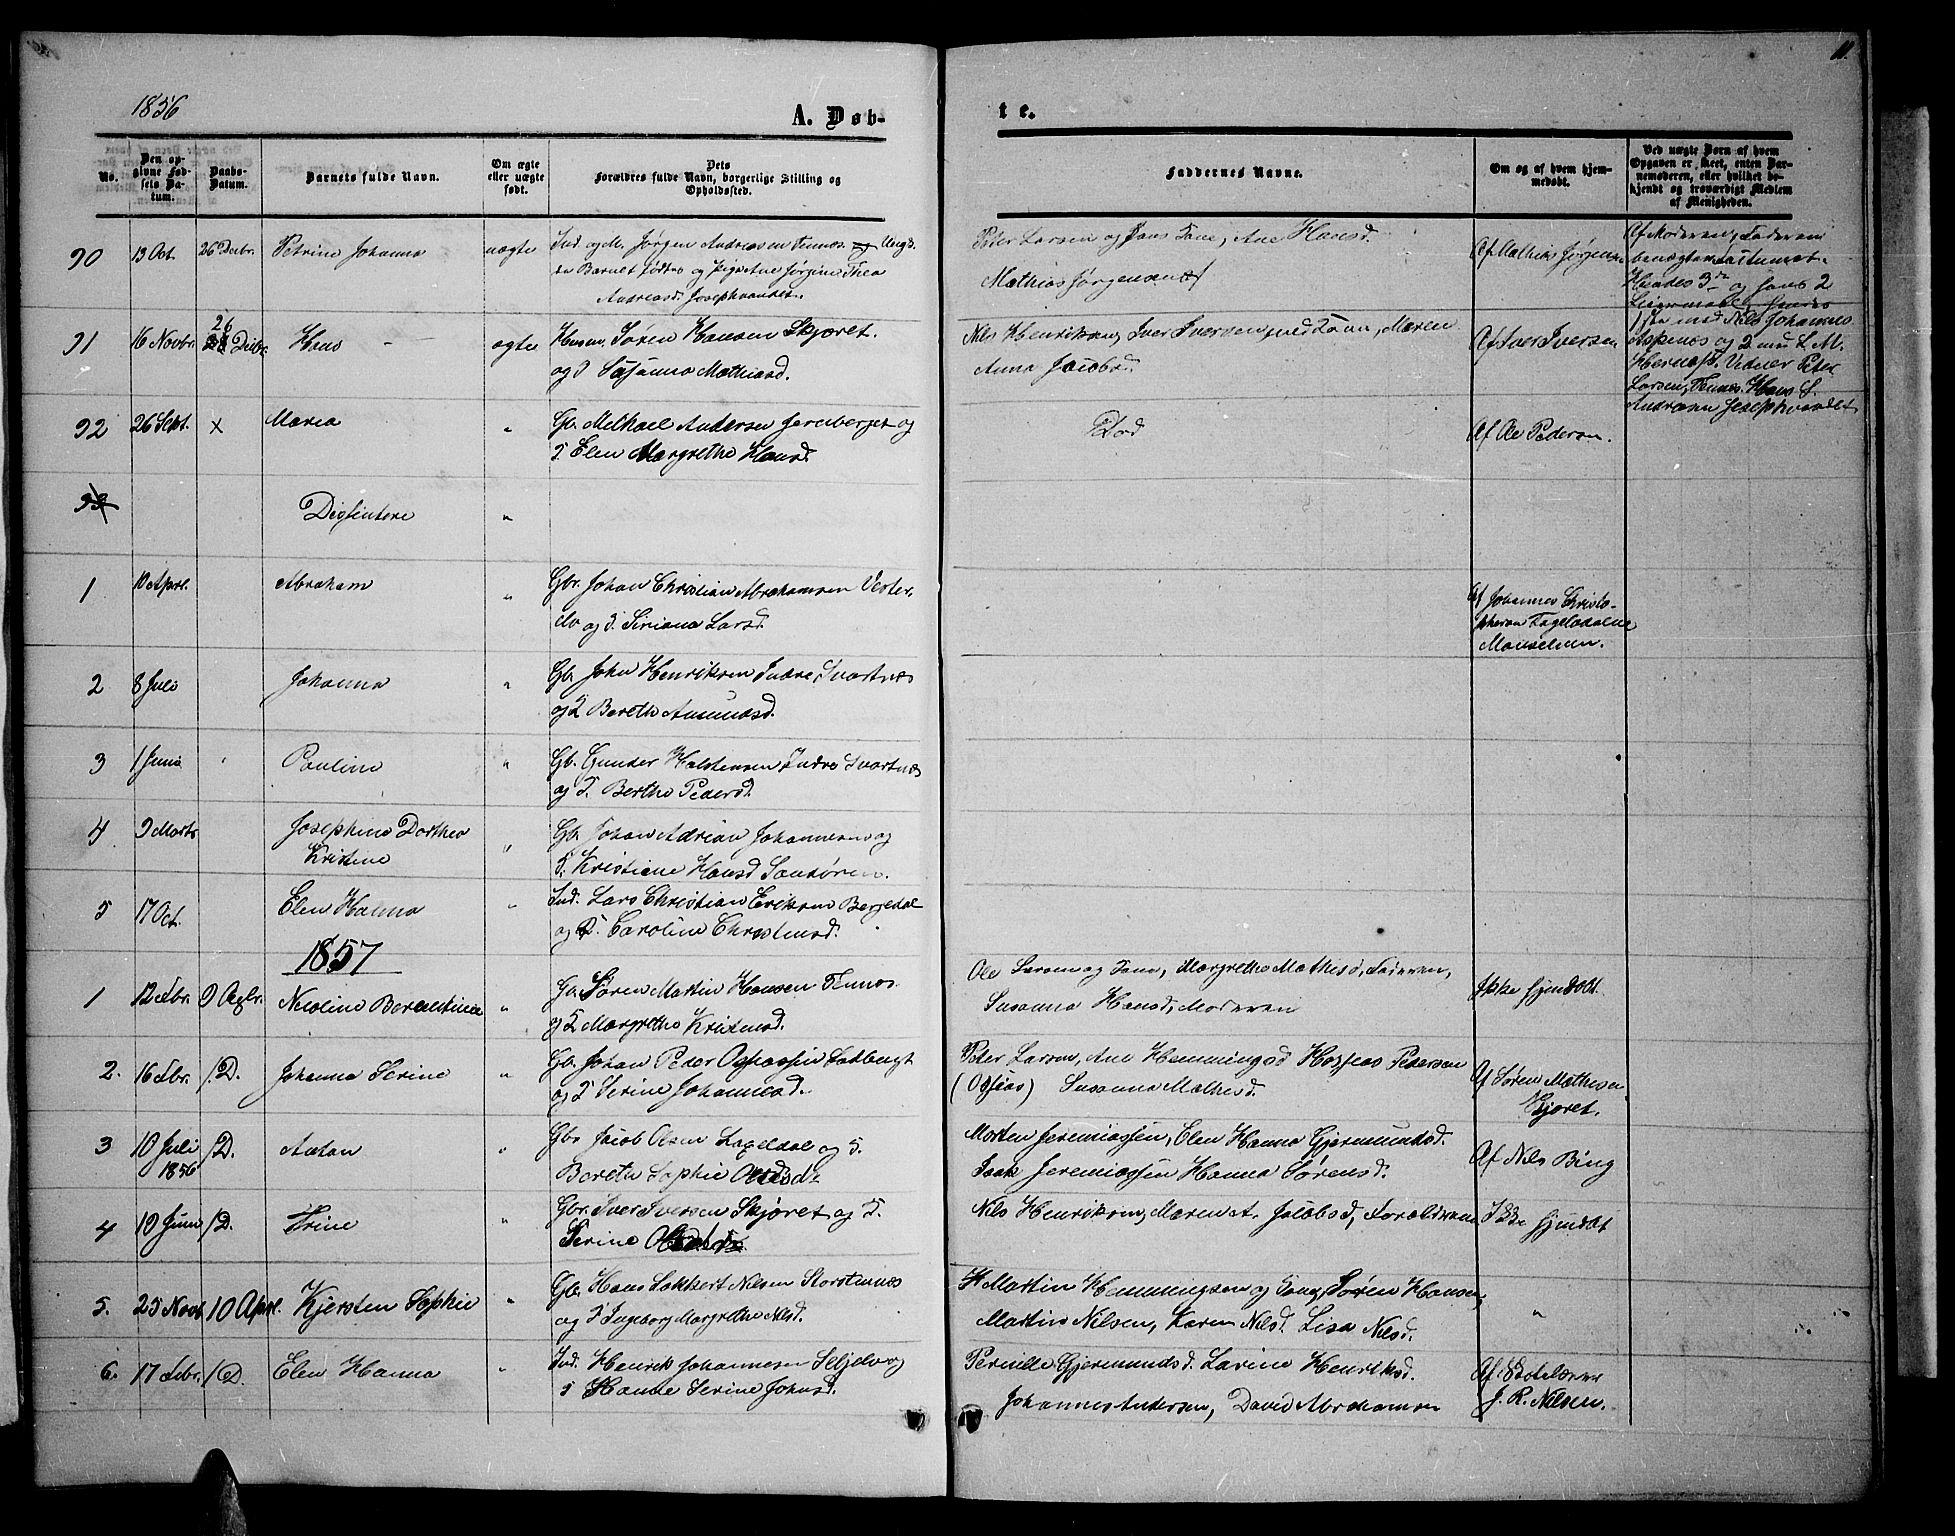 1856
A. Døb-
te.
11.
No.
Den op-
givne Fød-
sels Da-
tum.
Daabs-
Datum.
Barnets fulde Navn.
Om ægte
eller uægte
født.
Dets
Forældres fulde Navn, borgerlige Stilling og
Opholdssted.
Faddernes Navne.
Om og af hvem hjem-
medøbt.
Ved uægte Børn af hvem
Opgaven er skeet, enten Bar-
nemoderen, eller hvilket be-
kjendt og troværdigt Medlem
af Menigheden.
90 13 Oct. 26 Decbr. Petrine Johanna uægte Ind og M. Jørgen Andreasen Fennes og Ungd.
da Barnet fødtes og Pige Ane Jørgine Thea
Andreasd. Josephvandet.
Peter Larsen og Hans Kone, Ane Hansd.
Mathias Jørgensen
Af Mathis Jørgensen
Af Moderen, Faderen
Hendes 3die og hans 2
Leiermaal, Hendes
1ste med Nils Johannes
Aspenes og 2 med L. M.
Vidner Peter
Larsen, Fennes. Hans L.
Andreasen Josephvandet
91 16 Novbr. 26 Decbr. Hans ægte Husm. Søren Hansen Skjæret.
og H Susanna Mathiasd.
Nils Henriksen, Iver Iversen med Kone, Maren
Anna Jacobsd.
Af Iver Iversen
92 26 Sept. x Maria " Gb. Mikael Andersen Jernberget og
H. Elen Margrethe Hansd.
Død
Af Ole Pedersen.
93 Dissentere "
1 10 Aprl. Abraham " Gbr. Johan Christian Abrahamsen Vester-
elv og H. Siriana Larsd.
Af Johannes Christo-
phersen Fageldalene
Maalselven.
2 8 Juli Johanna " Gb. John Henriksen Indre Svartnes
og H Bereth Amundsd.
3 1 Juni Pauline " Gb. Gunder Halstensen Indre Svartnes
og H. Berthe Pedersd.
4 9 Marts Josephine Dorthea
Kristine " Gb. Johan Adrian Johannesen og
H. Kristiane Hansd Sandøren.
5 17 Oct. Elen Hanna " Ind. Lars Christian Eriksen Bergedal
og H. Caroline Christensd.
1857
1 12 Febr. Nicoline Berentine " Gb. Søren Martin Hansen Fennes.
og H Margrethe Kristensd.
Ole Larsen og Kone, Margrethe Mathisd, Faderen,
Susanna Hansd, Moderen
Ikke hjemdøbt.
2. 16 Febr. /D. Johanna Serine " Gb. Johan Peder Osjassen Sadbugt
og H Serine Johannesd.
Peter Larsen, Ane Hemmingsd Hosjeas Pedersen
(Osjias) Susanna Mathisd.
Af Søren Mathisen
Skjæret.
3 10 Juli
1856 /D. Anton " Gbr Jacob Olsen Lageldal og H.
Bereth Sophie Olesd.
Morten Jeremiassen, Elen Hanna Gjermundsd.
Isak Jeremiassen Hanna Sørensd.
Af Nils Bing
4 10 Juni /D. Trine " Gbr. Iver Iversen Skjæret, og H.
Serine
Nils Henriksen, Maren A. Jacobsd, Forældrene
Ikke hjemdøbt
5. 25 Novb. 10 Aprl. Kjersten Sophie " Gb. Hans Lokkert Nilsen Storstennes
og H Ingeborg Margrethe Nilsd.
H Martin Hemmingsen og Kone, Søren Hansen,
Martin Nilsen, Karen Nilsd. Lisa Nilsd.
"
6. 17 Febr. /D. Elen Hanna " Ind. Henrik Johannesen Seljelv og
H Hanne Serine Johnsd.
Pernille Gjermundsd. Larine Henriksd.
Johannes Andersen, David Abrahamsen
Af Skolelærer
J. R. Nilsen.